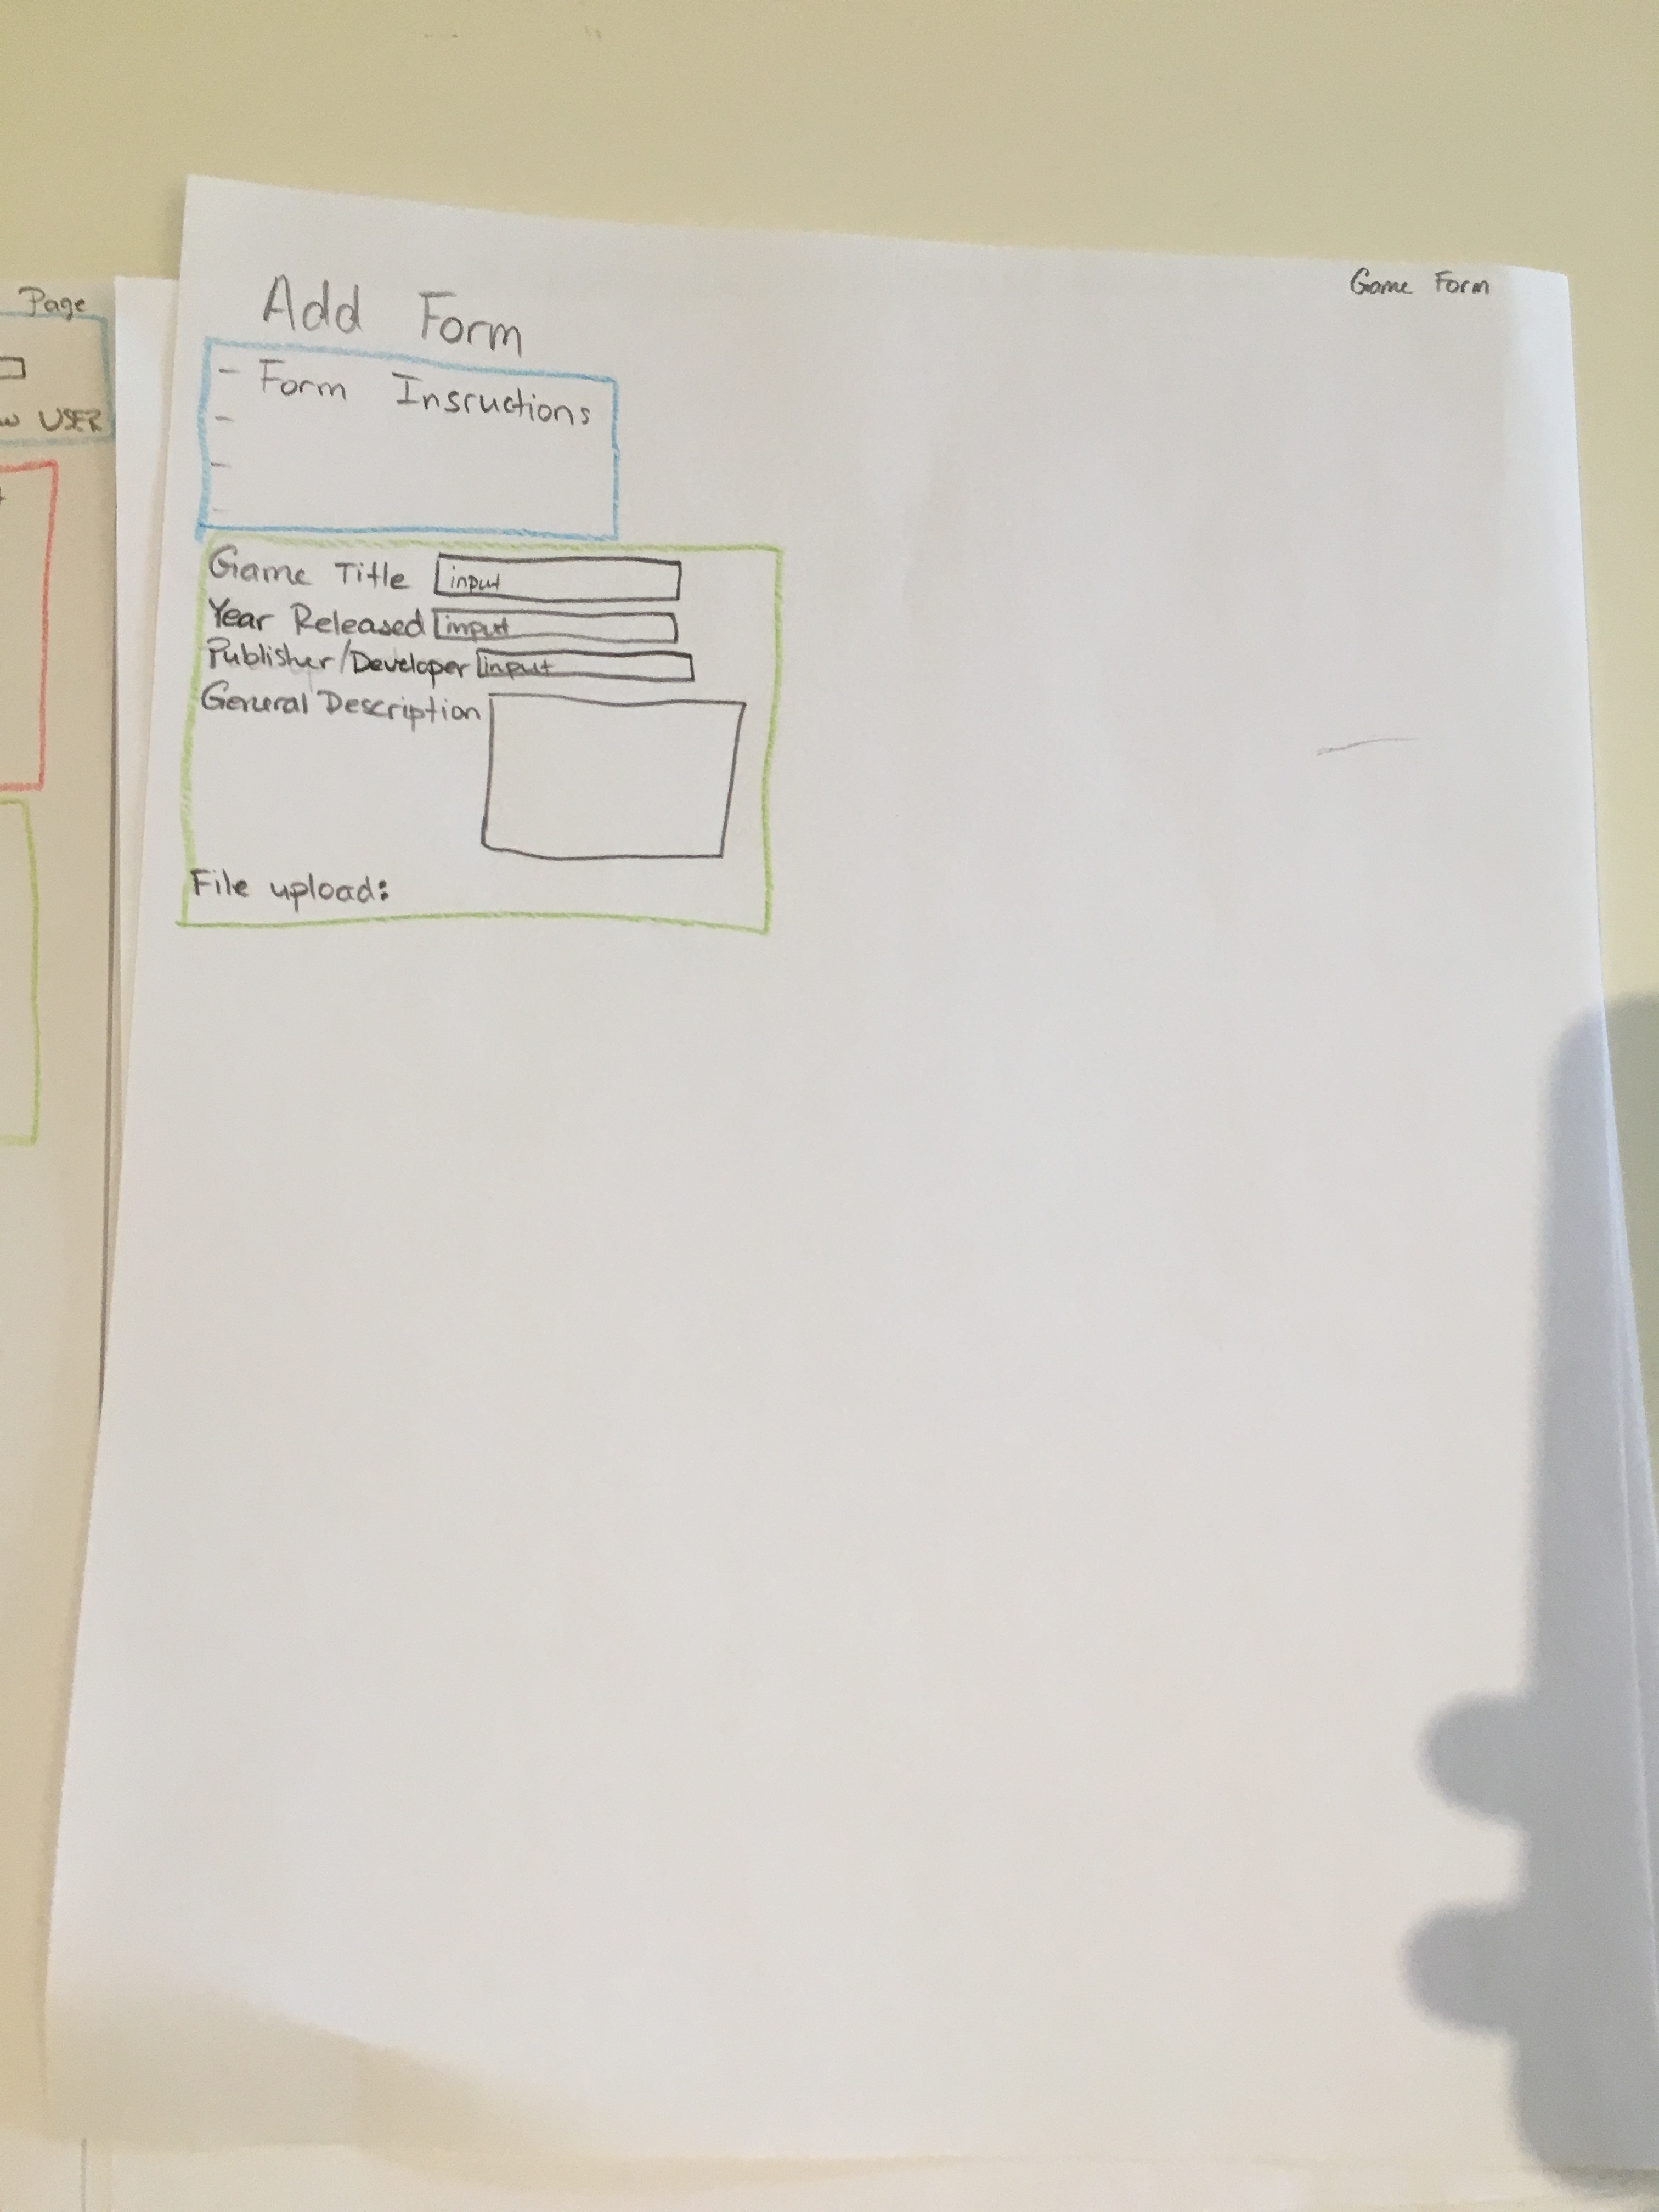 Page
w USER
Game Form
Add Form
- Form Insructions
-
-
-
Game Title input
Year Released input
Publisher/Developer input
General Description
File upload: